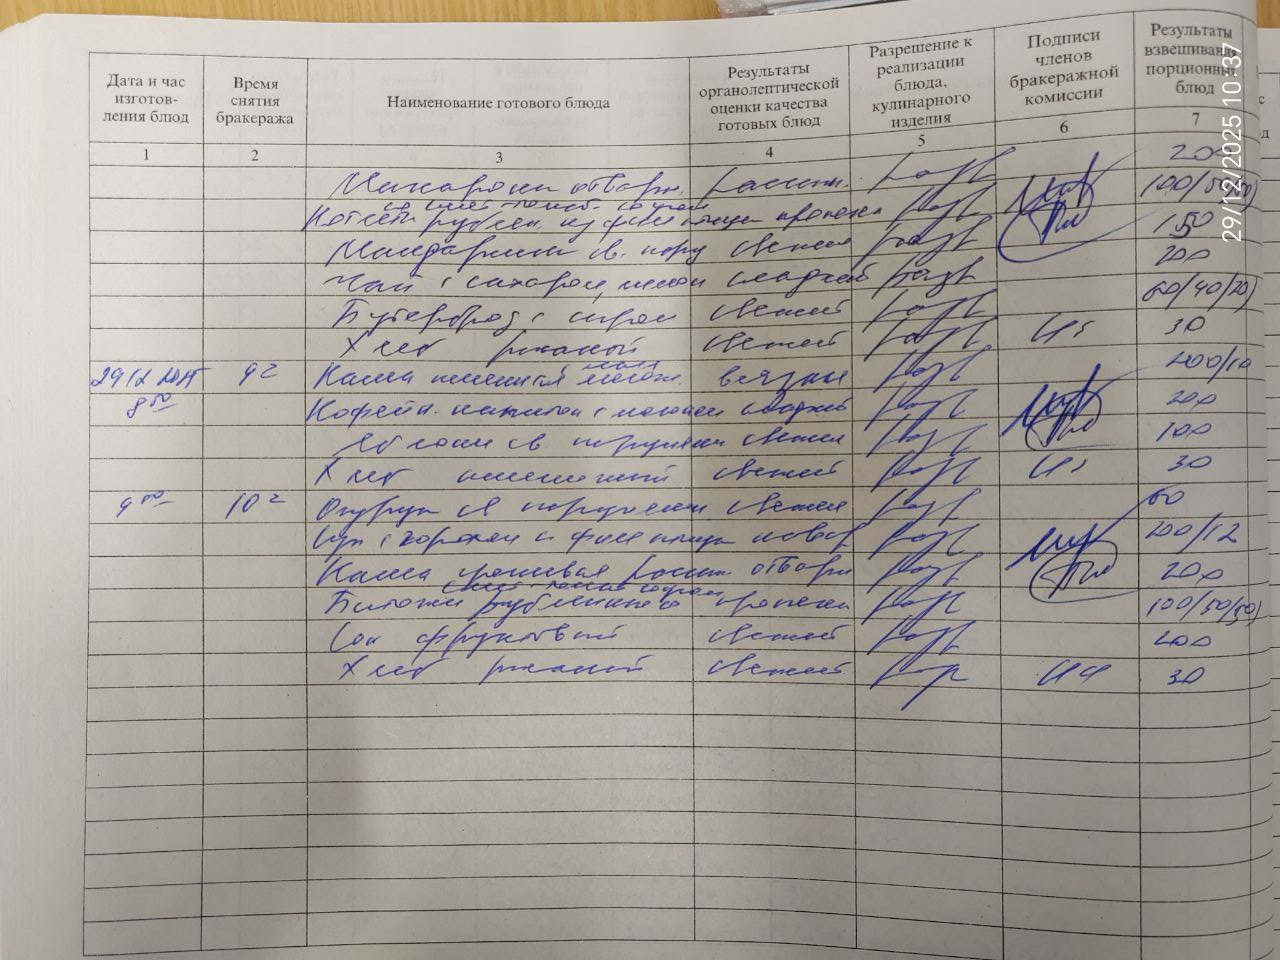 Дата и час изготов-ления блюд
Время снятия бракеража
Наименование готового блюда
Результаты органолептической оценки качества готовых блюд
Разрешение к реализации блюда, кулинарного изделия
Подписи членов бракеражной комиссии
Результаты взвешивания порционных блюд
1 2 3 4 5 6 7
Макароны отварн. рассып. разр 200
со смет. томат. соусом
Котлеты рублен. из филе птицы пропечен разр
Мандарины св. пору свежие разр
Чай с сахаром, сладкий разр 200
Бутерброд с сыром свежий разр 60/40/20
Хлеб ржаной свежий разр 30
29 12 2025 9 Каша молоч. вязкая разр 200/10
8 50 Кофейн. напиток с молоком сладкий разр 200
Яблоки св. порциями свежие разр 100
Хлеб пшеничный свежий разр 30
9 50 10 Огурцы св порциями свежие разр 60
Суп с горохом и филе птицы разр 200/12
Каша гречневая рассып отварн разр 200
смет томат соусом
Биточки рубленные пропечен разр 100/50/50
Сок фруктовый свежий разр 200
Хлеб ржаной свежий разр 30
29/12/2025 10:37